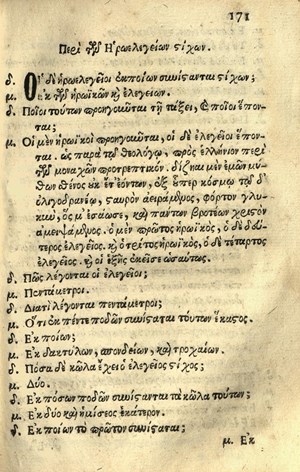 171
Περὶ τῶν Ἡρωελεγείων στίχων.
δ. Οἱ δὲ ἡρωελεγεῖοι ἐκ ποίων συνίστανται στίχων;
μ. Ἐκ τῶν ἡρωϊκῶν καὶ ἐλεγείων.
δ. Ποῖοι τούτων προηγοῦνται τῇ τάξει, καὶ ποῖοι ἕπον-
ται;
μ. Οἱ μὲν ἡρωϊκοὶ προηγοῦνται, οἱ δὲ ἐλεγεῖοι ἕπον-
ται. ὡς παρὰ τῷ θεολόγῳ, πρὸς ἑλλήνιον περὶ
τῶν μοναχῶν προτρεπτικόν.
ὃς ὑπὲρ κόσμου τοῦ δ᾽
ὀλιγοδρανέω, σταυρὸν ἀειράμενος, φόρτον γλυ-
κιω, ὅς μ᾽ ἐσάωσε, καὶ πάντων βροτέων χριστὸν
ἀμειψάμενος. ὁ μὲν πρῶτος ἡρωϊκὸς, ὁ δὲ δεύ-
τερος ἐλεγεῖος. καὶ ὁ τρίτος ἡρωϊκὸς, ὁ δὲ τέταρτος
ἐλεγεῖος. καὶ οἱ ἑξῆς ἐκεῖσε ὡσαύτως.
δ. Πῶς λέγονται οἱ ἐλεγεῖοι;
μ. Πεντάμετροι.
δ. Διατί λέγονται πεντάμετροι;
μ. Ὅτι ἐκ πέντε ποδῶν συνίσταται τούτων ἕκαστος.
δ. Ἐκ ποίων;
μ. Ἐκ δακτύλων, σπονδείων, καὶ τροχαίων.
δ. Πόσα δὲ κῶλα ἔχει ὁ ἐλεγεῖος στίχος;
μ. Δύο.
δ. Ἐκ πόσων ποδῶν συνίσταται τὰ κῶλα τούτων;
μ. Ἐκ δύο καὶ ἡμίσεος ἑκάτερον.
δ. Ἐκ ποίων τὸ πρῶτον συνίσταται;
μ. Ἐκ